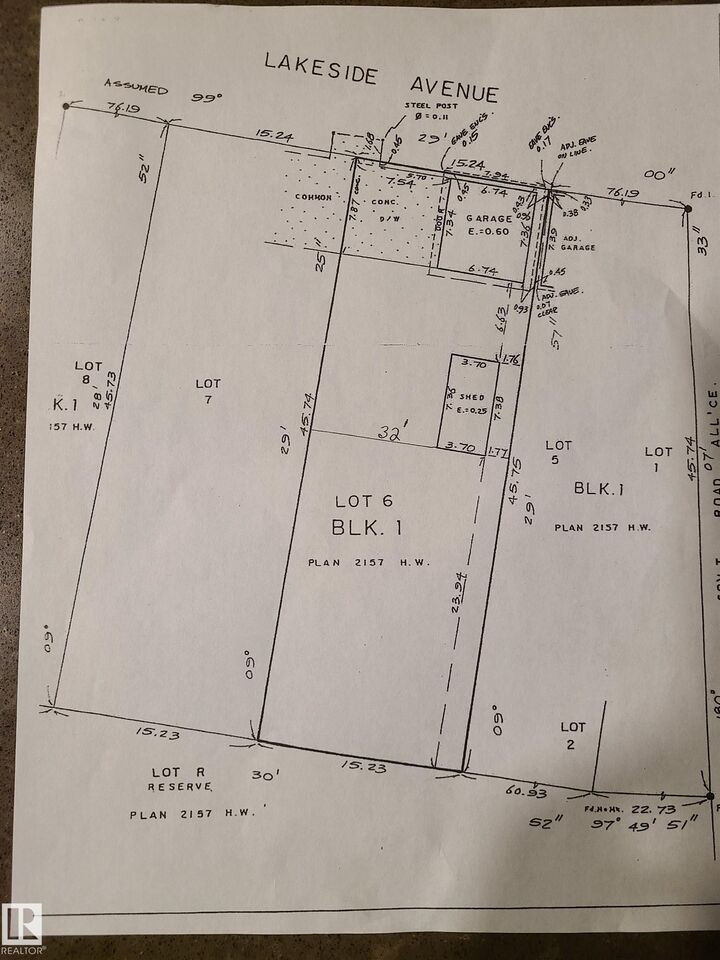 LAKESIDE AVENUE
ASSUMED 99°
STEEL POST
Ø = 0.11
29'
EAVE ENC'S.
0.15
EAVE ENC'S.
0.17
ADJ. EAVE
ON LINE.
76.19
15.24
1.68
0.45
15.24
76.19
00"
Fd. I.
52"
5.70
7.94
7.54
0.45
6.74
0.93
0.38
0.33
33"
COMMON
7.87 CONC.
CONC.
D/W
DOOR
7.34
GARAGE
E.=0.60
7.36
7.39
ADJ.
GARAGE
25"
6.74
0.45
0.93
ADJ. EAVE.
0.07
CLEAR
6.63
57"
LOT
8
K.1
157 H.W.
28'
45.73
LOT
7
3.70
1.76
7.36
SHED
E.=0.25
7.38
45.74
29'
32'
3.70
1.77
LOT
5
BLK.1
PLAN 2157 H.W.
LOT
1
45.74
07'
ROAD ALL'CE.
45.75
29'
LOT 6
BLK. 1
PLAN 2157 H.W.
23.94
09°
09°
09°
180°
LOT
2
15.23
15.23
30'
LOT R
RESERVE
PLAN 2157 H.W.
60.93
22.73
52" 97° 49' 51"
R
REALTOR®